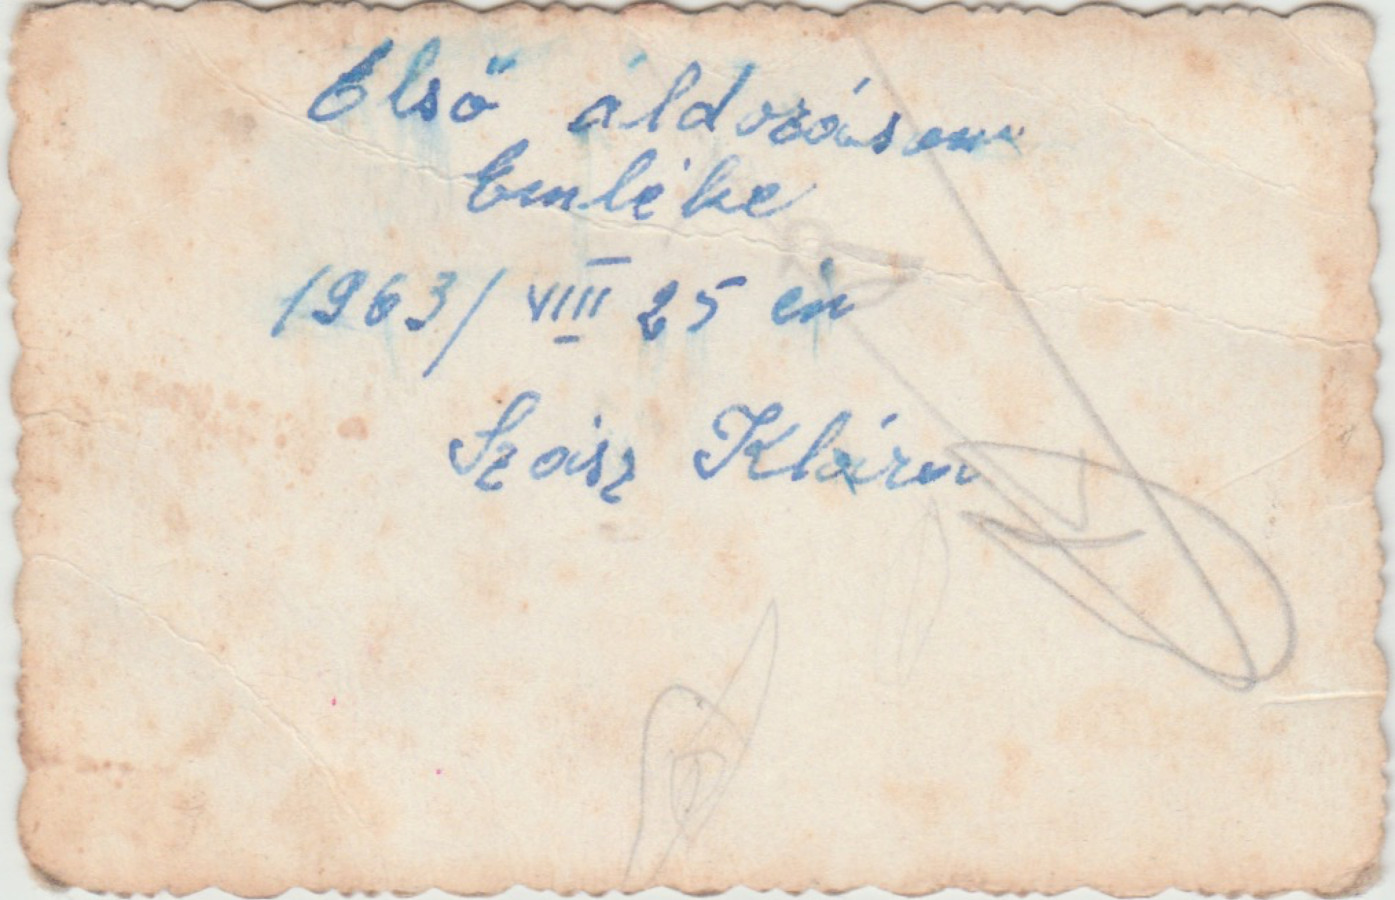 Első áldozásom
Emléke
1963/ VIII 25 én
Szász Klára